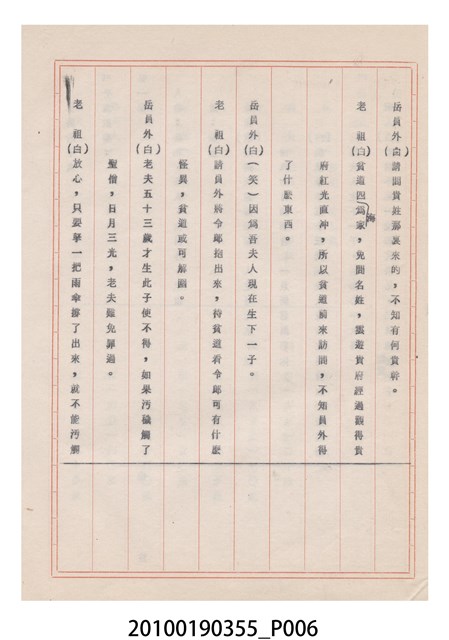 岳員外(白)請問貴姓那裏來的，不知有何貴幹。
老　祖(白)貧道四海爲家，免問名姓，雲遊貴府經過觀得貴
府紅光直冲，所以貧道前來訪問，不知員外得
了什麽東西。
岳員外(白)(笑)因爲吾夫人現在生下一子。
老　祖(白)請員外將令郎抱出來，待貧道看令郎可有什麽
怪異，貧道或可解圖。
岳員外(白)老夫五十三歲才生此子使不得，如果污穢觸了
聖僧，日月三光，老夫難免罪過。
老　祖(白)放心，只要拏一把雨傘撐了出來，就不能污觸
20100190355_P006